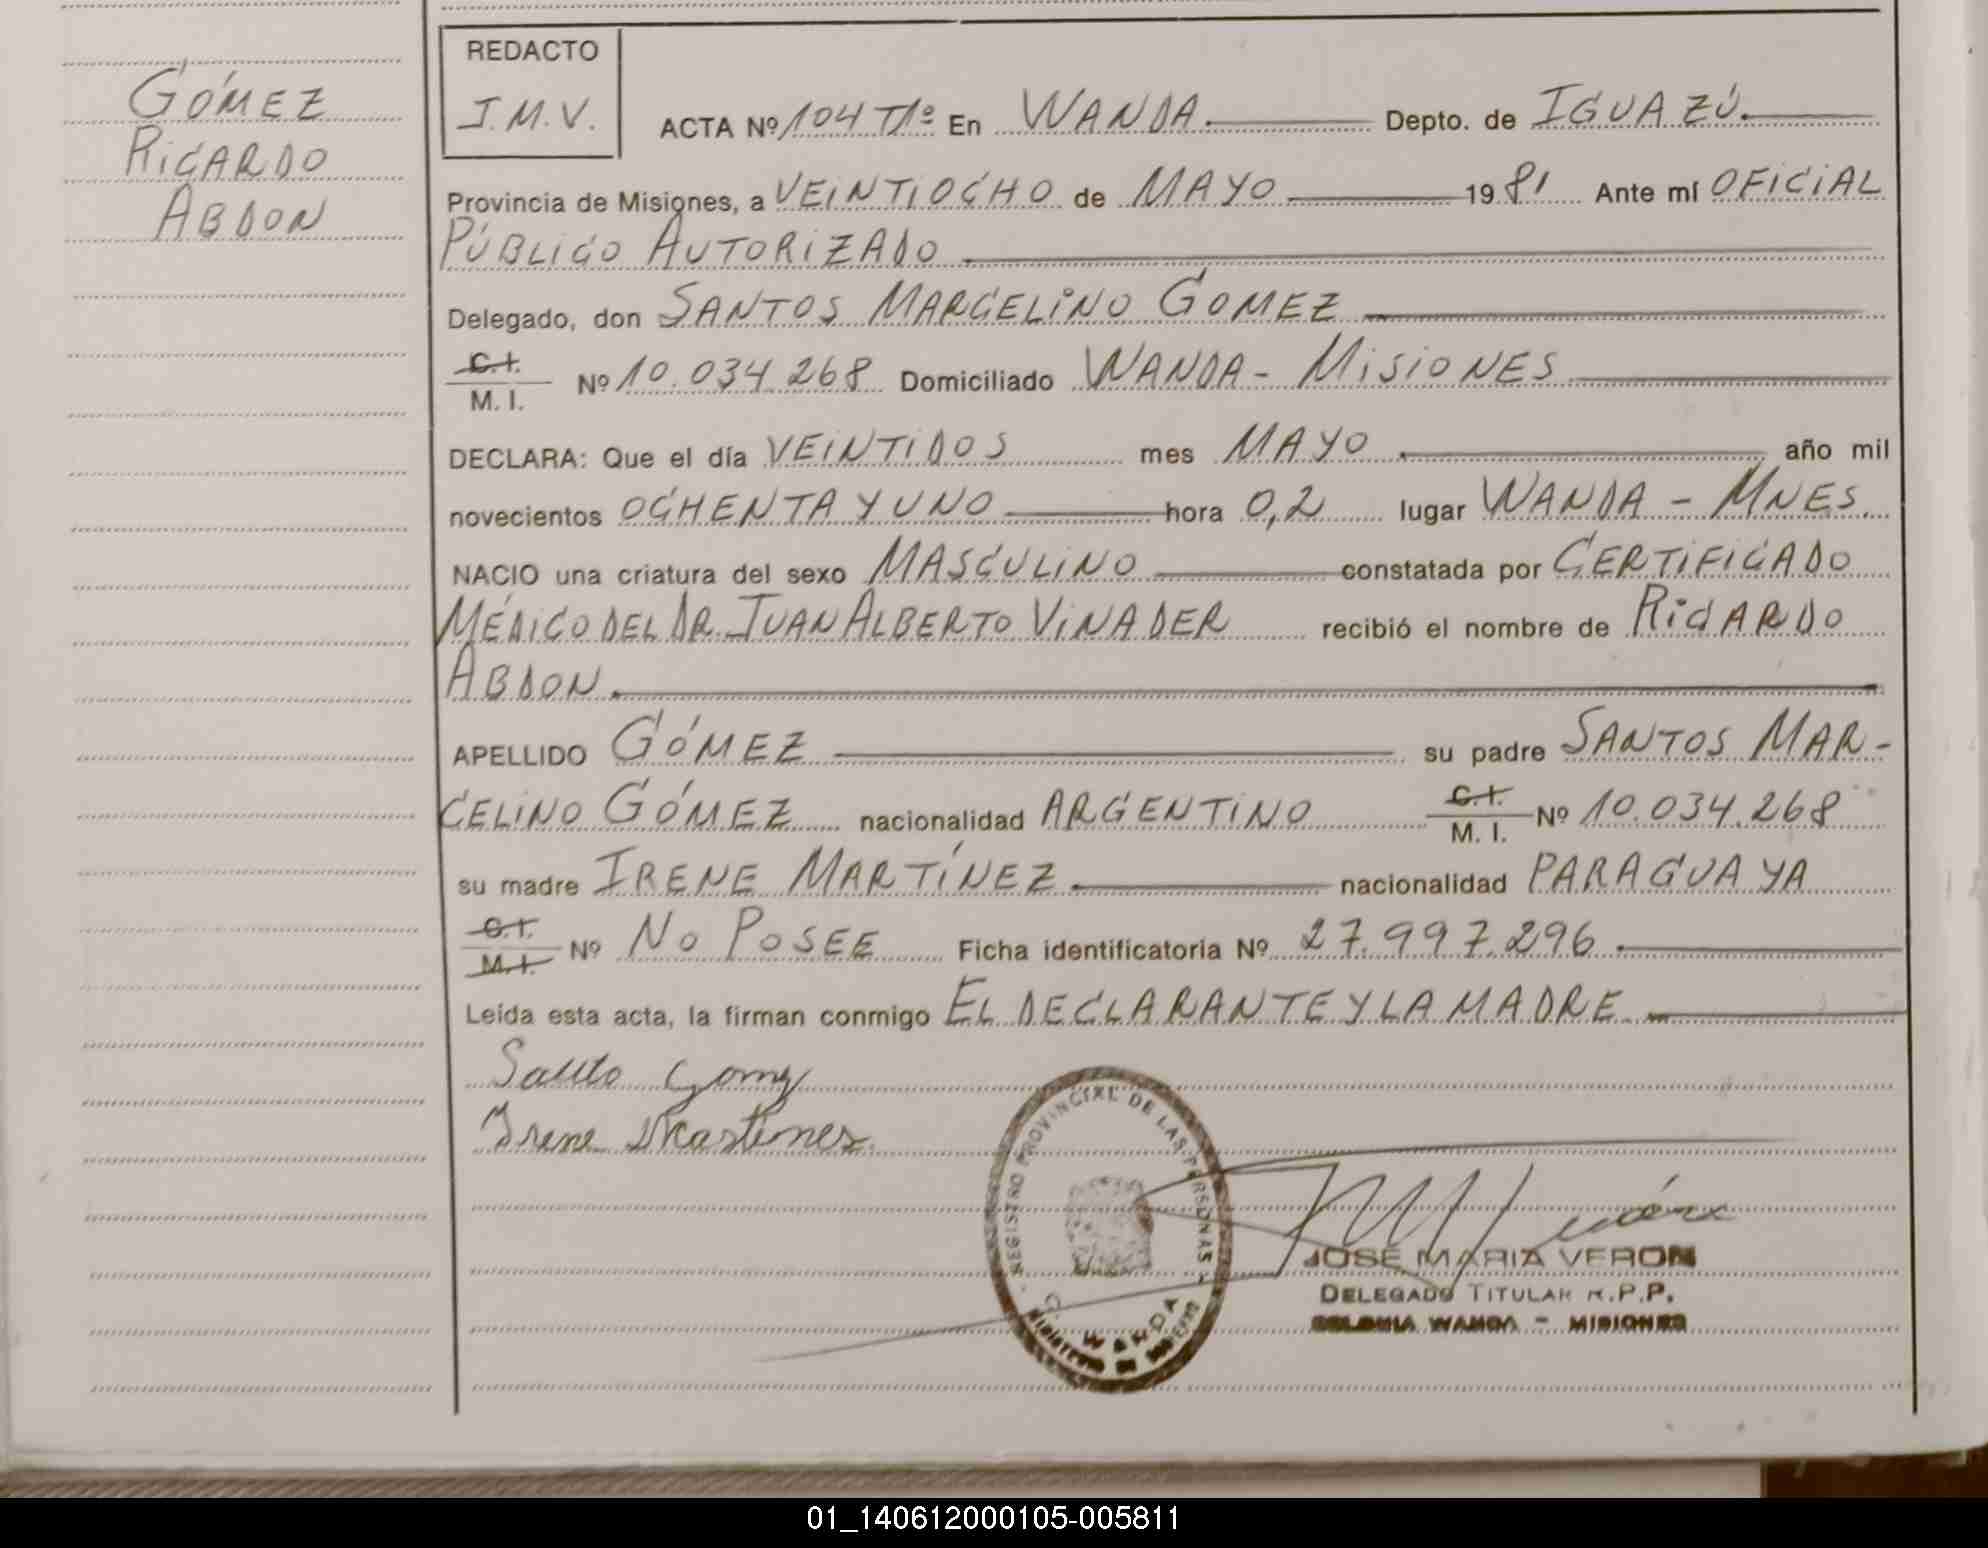 GÓMEZ
RICARDO
ABDON
REDACTO
J.M.V.
ACTA Nº 104 Tº1º En WANDA. Depto. de IGUAZÚ.
Provincia de Misiones, a VEINTIOCHO de MAYO 1981 Ante mí OFICIAL
PÚBLICO AUTORIZADO
Delegado, don SANTOS MARCELINO GOMEZ
C.I.
M. I. Nº 10.034.268 Domiciliado WANDA - MISIONES
DECLARA: Que el día VEINTIDOS mes MAYO año mil
novecientos OCHENTA Y UNO hora 0,2 lugar WANDA - MNES.
NACIO una criatura del sexo MASCULINO constatada por CERTIFICADO
MÉDICO DEL DR. JUAN ALBERTO VINADER recibió el nombre de RICARDO
ABDON.
APELLIDO GÓMEZ su padre SANTOS MAR-
CELINO GÓMEZ nacionalidad ARGENTINO C.I. M. I. Nº 10.034.268
su madre IRENE MARTÍNEZ nacionalidad PARAGUAYA
C.I. M.I. Nº NO POSEE Ficha identificatoria Nº 27.997.296.
Leída esta acta, la firman conmigo EL DECLARANTE Y LA MADRE
Santo Gomez
Irene Martines.
REGISTRO PROVINCIAL DE LAS PERSONAS
WANDA
MINISTERIO DE GOBIERNO
JOSE MARIA VERON
DELEGADO TITULAR R.P.P.
COLONIA WANDA - MISIONES
01_140612000105-005811